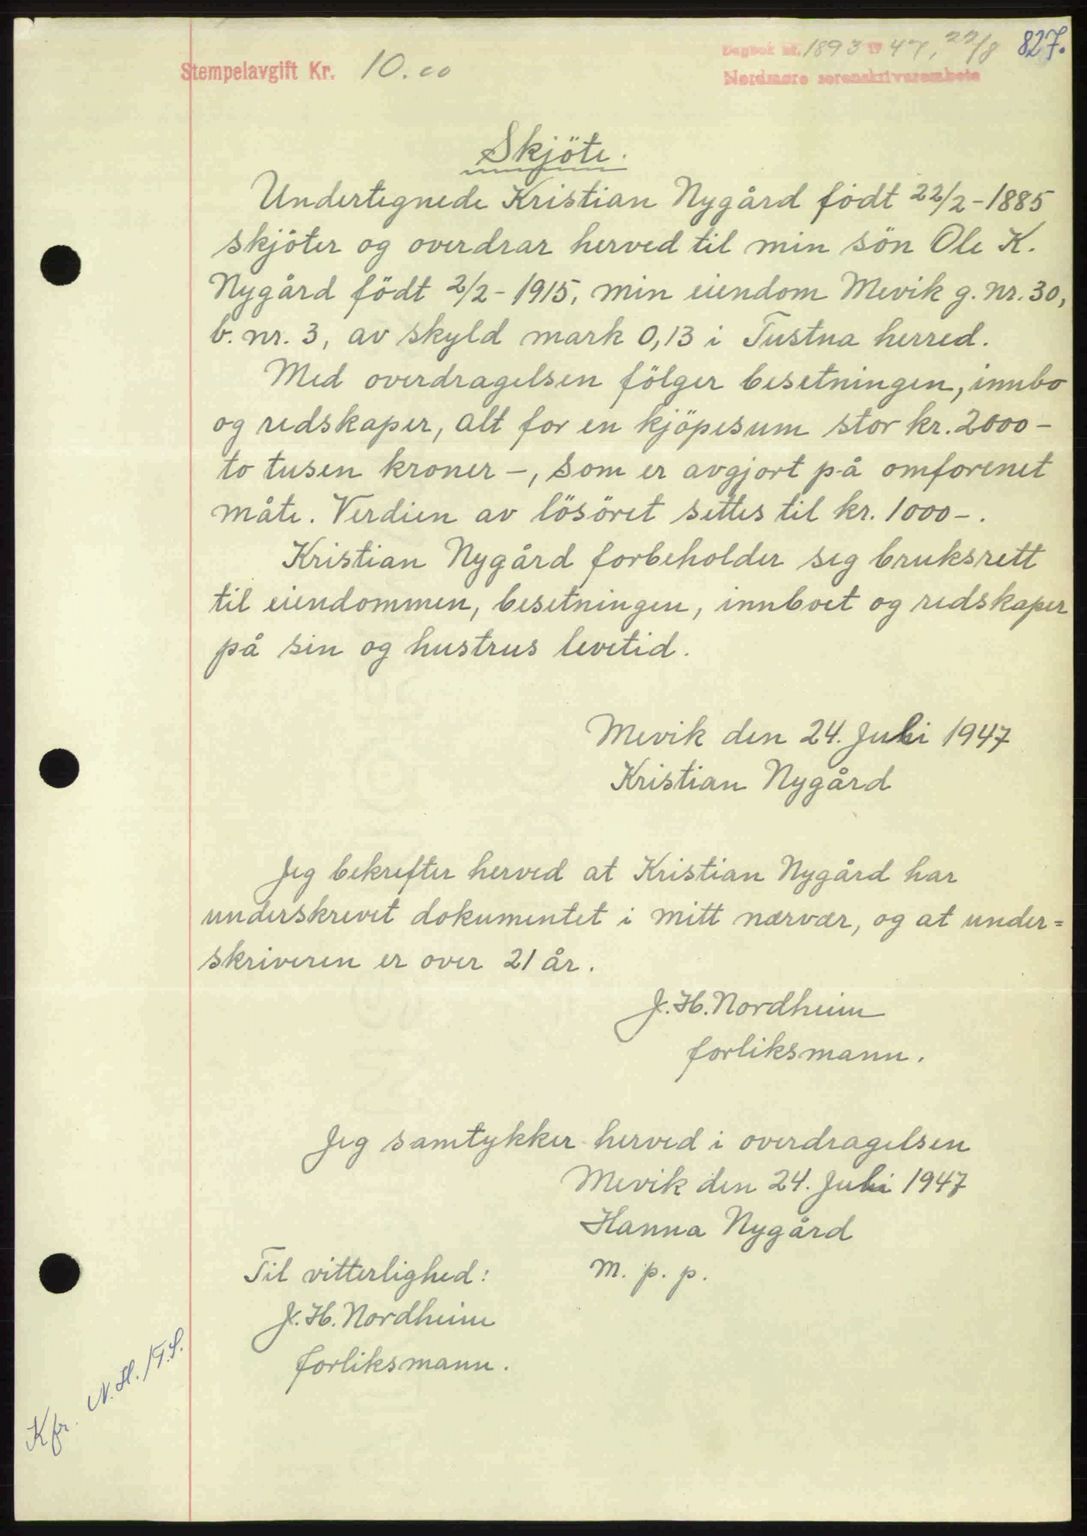 827.
Dagbok nr. 1893 19 47, 22/8
Nordmøre sorenskriverembete
Stempelavgift Kr. 10.00
Skjöte.
Undertegnede Kristian Nygård födt 22/2-1885
skjöter og overdrar herved til min sön Ole K.
Nygård födt 2/2-1915, min eiendom Mevik g. nr. 30,
b. nr. 3, av skyld mark 0,13 i Tustna herred.
Med overdragelsen fölger besetningen, innbo
og redskaper, alt for en kjöpesum stor kr. 2000-
to tusen kroner -, som er avgjort på omforenet
måte. Verdien av lösöret settes til kr. 1000-.
Kristian Nygård forbeholder seg bruksrett
til eiendommen, besetningen, innboet og redskaper
på sin og hustrus levetid.
Mevik den 24. Juli 1947
Kristian Nygård
Jeg bekrefter herved at Kristian Nygård har
underskrevet dokumentet i mitt nærvær, og at under=
skriveren er over 21 år.
J. H. Nordheim
forliksmann.
Jeg samtykker herved i overdragelsen
Mevik den 24. Juli 1947
Hanna Nygård
m. p. p.
Til vitterlighed:
J. H. Nordheim
forliksmann.
Kfr. N.H./T.S.